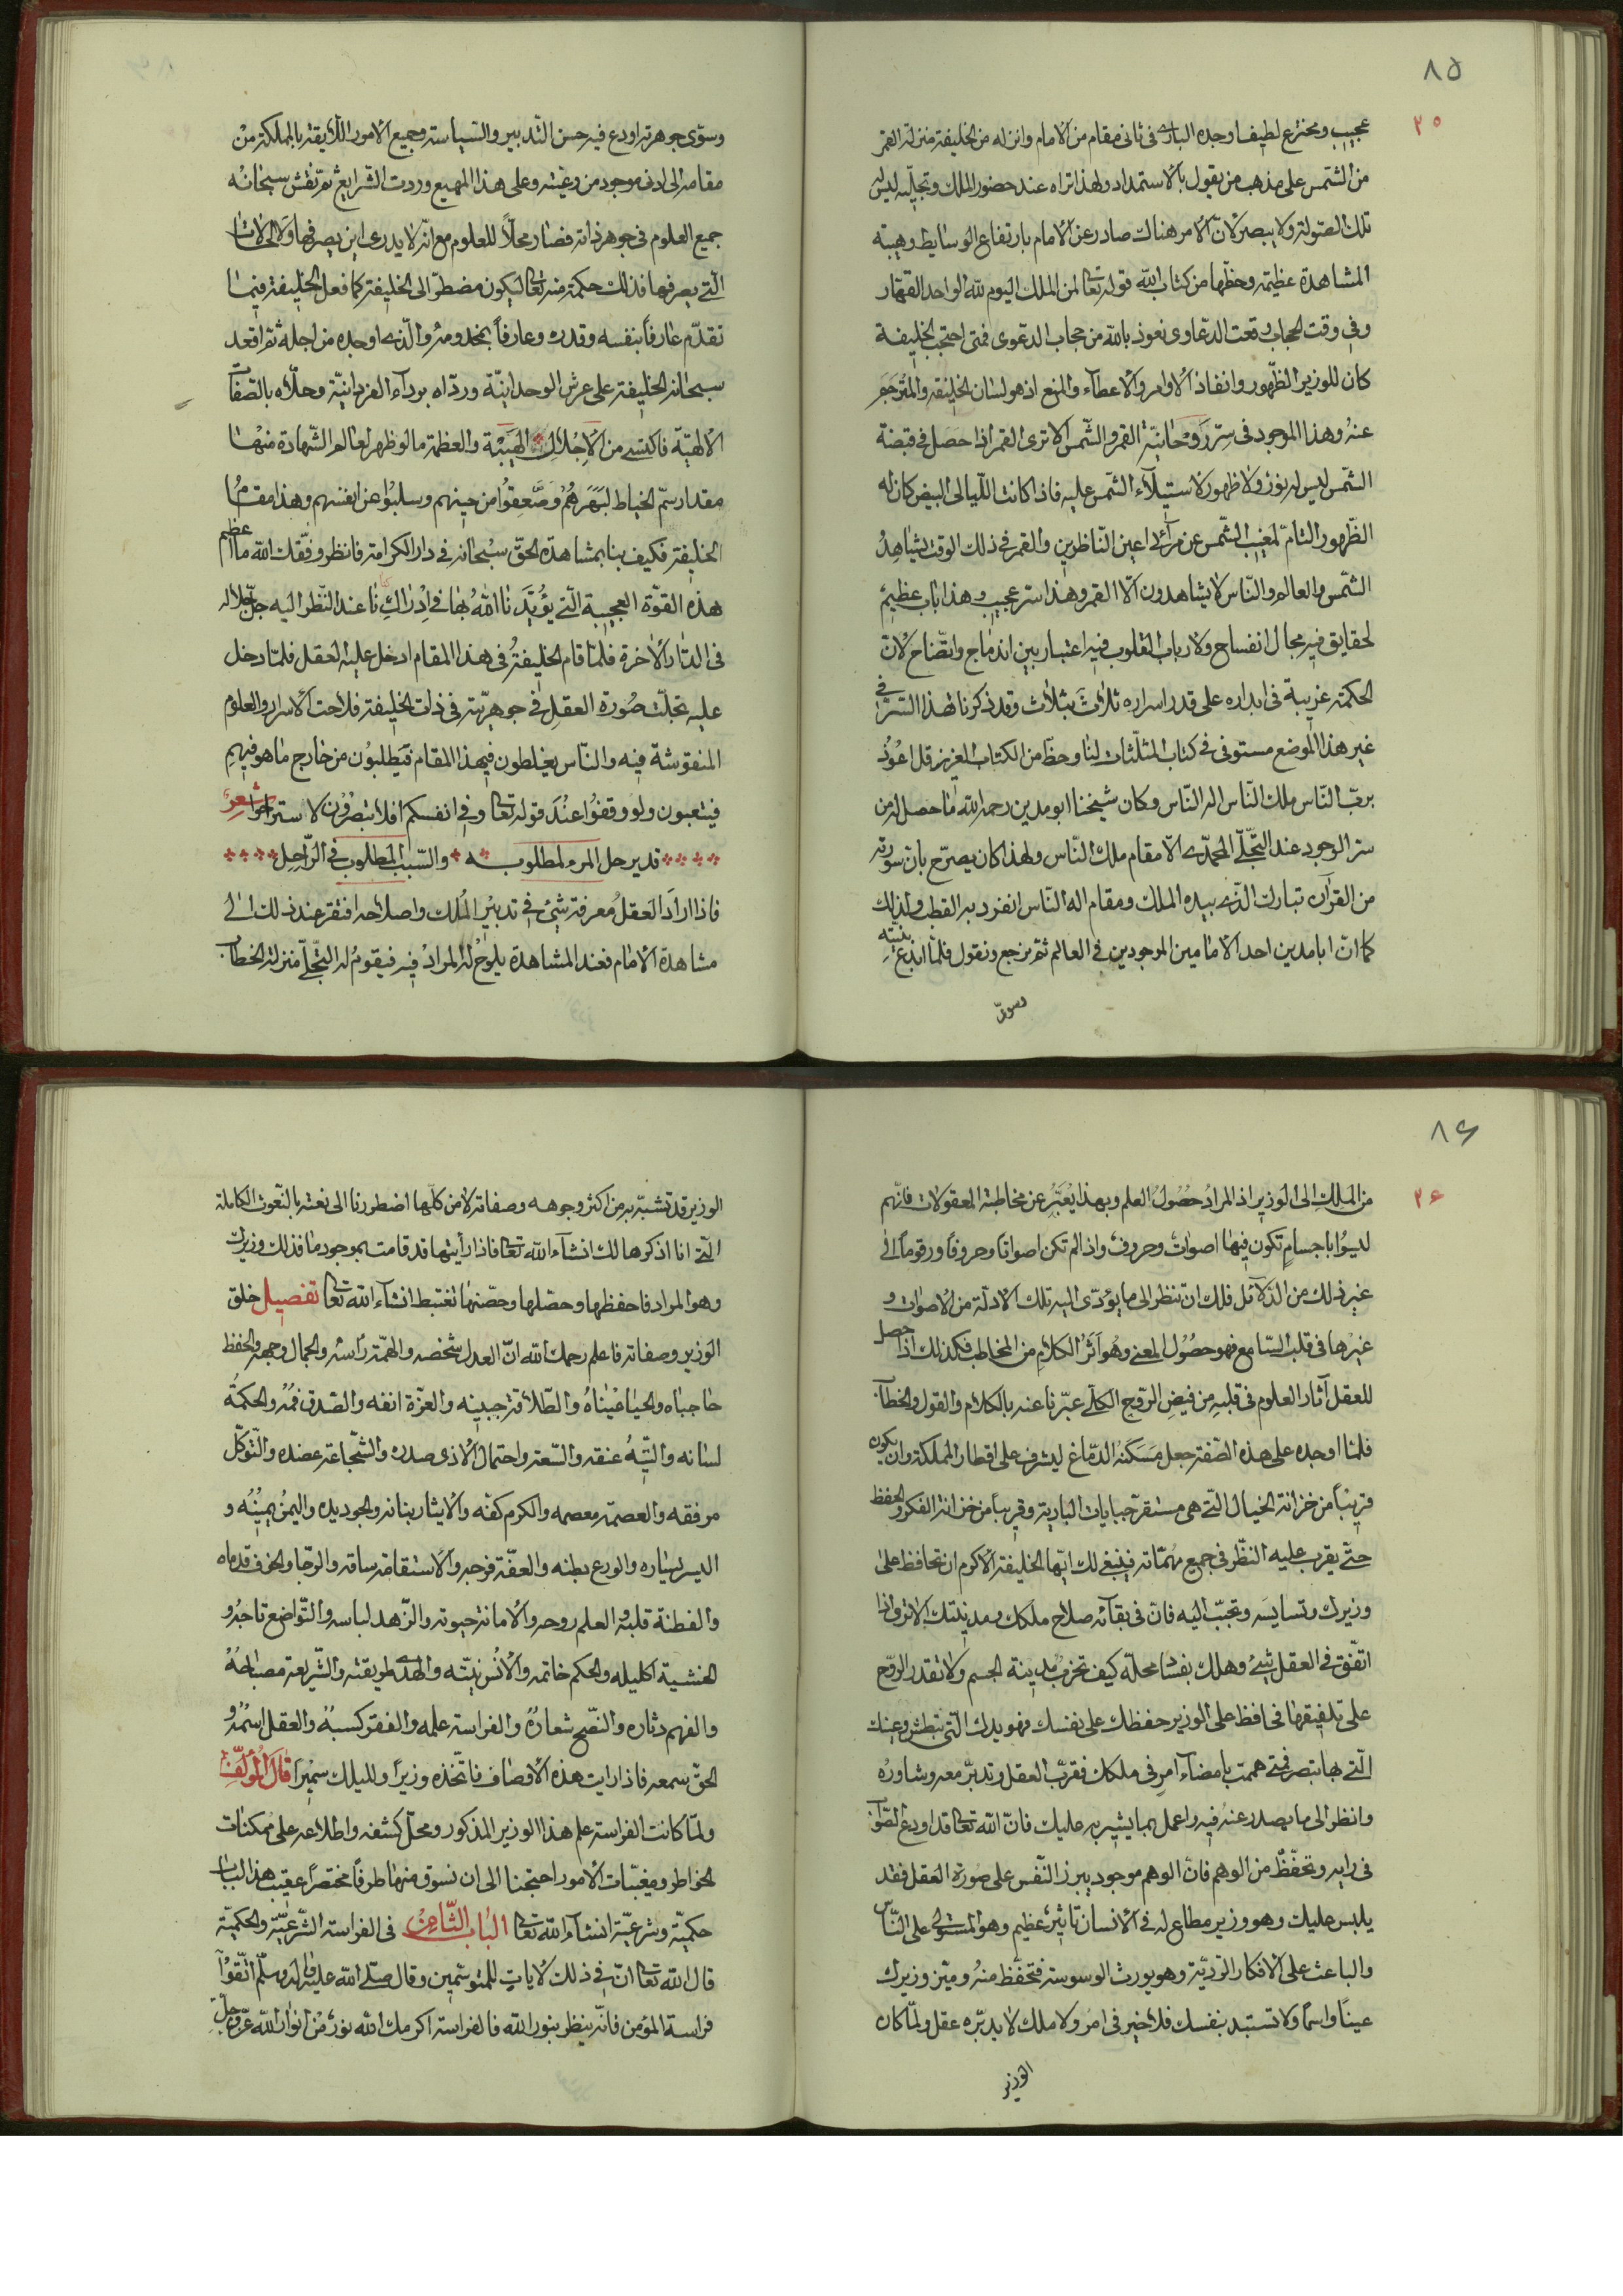 ٨٥
٢٥
عجيب ومخترع لطيف اوجده البارى فى ثانى مقام من الامام وانزله من الخليفة منزلة القمر
من الشمس على مذهب من يقول بالاستمداد ولهذا تراه عند حضور الملك وتجليه ليس له
تلك الصولة ولا يبصر لانّ الامر هناك صادر عن الامام بارتفاع الوسايط وهيبته
المشاهدة عظيمة وحظها من كتاب الله قوله تعالى لمن الملك اليوم لله الواحد القهار
وفى وقت الحجاب وقعت الدعاوى نعوذ بالله من حجاب الدعوى فمتى احتجب الخليفة
كان للوزير الظهور وانفاذ الاوامر والاعطاء والمنع اذ هو لسان الخليفة والمترجم
عنه وهذا الموجود فى سرّ روحانيّة القمر والشمس الا ترى القمر اذا حصل فى قبضة
الشمس ليس له نور ولا ظهور لاستيلاء الشمس عليه فاذا كانت الليالى البيض كان له
الظهور التامّ لمغيب الشمس عن مرآئى اعين الناظرين والقمر فى ذلك الوقت يشاهد
الشمس والعالم والناس لا يشاهدون الّا القمر وهذا سر عجيب وهذا باب عظيم
لحقايق فيه مجال انفساح ولارباب القلوب فيه اعتبار بين اندماج واتضاح لان
الحكمة غريبة فى ابداره على قدر اسراره ثلاث بثلاث وقد ذكرنا هذا السّر فى
غير هذا الموضع مستوفى فى كتاب المثلثات لنا وحظا من الكتاب العزيز قل اعوذ
بربّ الناس ملك الناس اله الناس وكان شيخنا ابو مدين رحمه الله ما حصل له من
سر الوجود عند التجلّى المحمدى الا مقام ملك الناس ولهذا كان يصرّح بان سورته
من القرآن تبارك الذى بيده الملك ومقام اله الناس انفرد به القطب ولذلك
كما انّ ابا مدين احد الامامين الموجودين فى العالم ثم نرجع ونقول فلما ابدع بنيته
وسوى
وسوّى جوهرته اودع فيه حسن التدبير والسياسة وجميع الامور اللايقة بالمملكة من
مقامه الى ادنى موجود من رعيته وعلى هذا المهيع وردت الشرايع ثم نقش سبحانه
جميع العلوم فى جوهر ذاته فصار محلاً للعلوم مع انّه لا يدرى اين يصرفها والحالات
الّتى يصرفها فذلك حكمة منه تعالى ليكون مضطرّا الى الخليفة كما فعل الخليفة فيما
تقدّم عارفاً بنفسه وقدره وعارفاً بمخدومه والّذى اوجده من اجله ثم اقعد
سبحانه الخليفة على عرش الوحدانيّة وردّاه برداء الفردانيّة وحلّاه بالصفات
الالهيّة فاكتسى من الاجلال الهيبة والعظمة ما لو ظهر لعالم الشهادة منها
مقدار سمّ الخياط لبهرهم وصعقوا من حينهم وسلبوا عن انفسهم وهذا مقام
الخليفة فكيف بنا بمشاهدة الحقّ سبحانه فى دار الكرامة فانظر وفقك الله ما اعظم
هذه القوة العجيبة الّتى يؤيدنا الله بها فى ادراكنا عند النظر اليه جلّ جلاله
فى الدار الاخرة فلمّا قام الخليفة فى هذا المقام ادخل عليه العقل فلمّا دخل
عليه تجلّت صورة العقل فى جوهريّته فى ذات الخليفة فلاحت الاسرار والعلوم
المنقوشة فيه والناس يغلطون فى هذا المقام فيطلبون من خارج ما هو فيهم
فيتعبون ولو وقفوا عند قوله تعالى وفى انفسكم افلا تبصرون لاستراحوا شعر
قد يرحل المرء لمطلوبه والسبب المطلوب فى الراحل
فاذا اراد العقل معرفة شئ فى تدبير الملك واصلاحه افتقر عند ذلك الى
مشاهدة الامام فعند المشاهدة يلوح له المراد فيه فيقوم له التجلّى منزلة الخطاب
٨٦
٢٦
من الملك الى الوزير اذ المراد حصول العلم وبهذا يعبّر عن مخاطبة المعقولات فانّهم
ليسوا باجسام تكون فيها اصوات وحروف واذا لم تكن اصواتا وحروفا ورقوما الى
غير ذلك من الدلائل فلك ان تنظر الى ما يؤدى اليه تلك الادلة من الاصوات و
غيرها فى قلب السامع فهو حصول المعنى وهو اثر الكلام من المخاطب فكذلك اذا حصل
للعقل آثار العلوم فى قلبه من فيض الروح الكلى عبّرنا عنه بالكلام والقول والخطاب
فلما اوجده على هذه الصفة جعل مسكنه الدماغ ليشرف على اقطار المملكة وان يكون
قريباً من خزانة الخيال الّتى هى مستقرّ جبايات البادية وقريباً من خزانة الفكر والحفظ
حتّى يقرب عليه النظر فى جميع مهمّاته فينبغى لك ايّها الخليفة الاكرم ان تحافظ على
وزيرك وتسايسه وتحبّب اليه فانّ فى بقائه صلاح ملكك ومدينتك الا ترى اذا
اتفق فى العقل شئ وهلك بفساد محلّه كيف تخرب مدينة الجسم ولا تقدر الروح
على تلفيقها فحافظ على الوزير حفظك على نفسك فهو يدك التى تبطش وعينك
الّتى بها تبصر فمتى هممت بامضاء امر فى ملكك فقرّب العقل وتدبّر معه وشاوره
وانظر الى ما يصدر عنه فيه واعمل بما يشير به عليك فانّ الله تعالى قد اودع الصواب
فى رايه وتحفّظ من الوهم فانّ الوهم موجود يبرز النفس على صورة العقل فقد
يلبس عليك وهو وزير مطاع له فى الانسان تاثير عظيم وهو المستولى على الناس
والباعث على الافكار الرّديّة وهو يورث الوسوسة فتحفّظ منه وميّز وزيرك
عيناً واسماً ولا تستبد بنفسك فلا خير فى امر ولا ملك لا يدبّره عقل ولمّا كان
الوزير
الوزير قد تشبّه به من اكثر وجوهه وصفاته لا من كلّها اضطررنا الى نعته بالنعوت الكاملة
الّتى انا اذكرها لك انشاء الله تعالى فاذا رأيتها قد قامت بموجود ما فذلك وزيرك
وهو المراد فاحفظها وحصّلها وحصّنها تغتبط انشاء الله تعالى تفصيل خلق
الوزير وصفاته فاعلم رحمك الله انّ العدل شخصه والهمّة رأسه والجمال وجهه والحفظ
حاجباه والحيا عيناه والطلاقة جبينه والعزّة انفه والصدق فمه والحكمة
لسانه والتيه عنقه والسّعة واحتمال الاذى صدره والشّجاعة عضده والتوكّل
مرفقه والعصمة معصمه والكرم كفّه والايثار بنانه والجود يده واليمن يمينه و
اليسر يساره والورع بطنه والعفّة فرجه والاستقامة ساقه والرّجا والخوف قدماه
والفطنة قلبه والعلم روحه والامانة حيوته والزهد لباسه والتواضع تاجه و
الخشية اكليله والحكم خاتمه والانس بيته والهدى طريقته والشّريعة مصباحه
والفهم دثاره والنصح شعاره والفراسة علمه والفقر كسبه والعقل اسمه و
الحقّ سمعه فاذا رايت هذه الاوصاف فاتخذه وزيراً ولليلك سميراً قال المؤلف
ولمّا كانت الفراسة علم هذا الوزير المذكور ومحلّ كشفه واطلاعه على ممكنات
الخواطر ومغيّبات الامور احتجنا الى ان نسوق منها طرفاً مختصراً عقيب هذا الباب
حكميّة وشرعيّة انشاء الله تعالى الباب الثّامن فى الفراسة الشّرعيّة والحكميّة
قال الله تعالى انّ فى ذلك لآيات للمتوسّمين وقال صلّى الله عليه وآله وسلّم اتقوا
فراسة المؤمن فانّه ينظر بنور الله فالفراسة اكرمك الله نور من انوار الله عزّ وجلّ